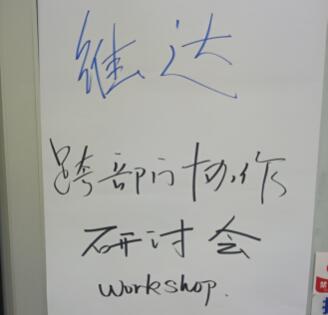 继达
跨部门协作
研讨会
workshop.